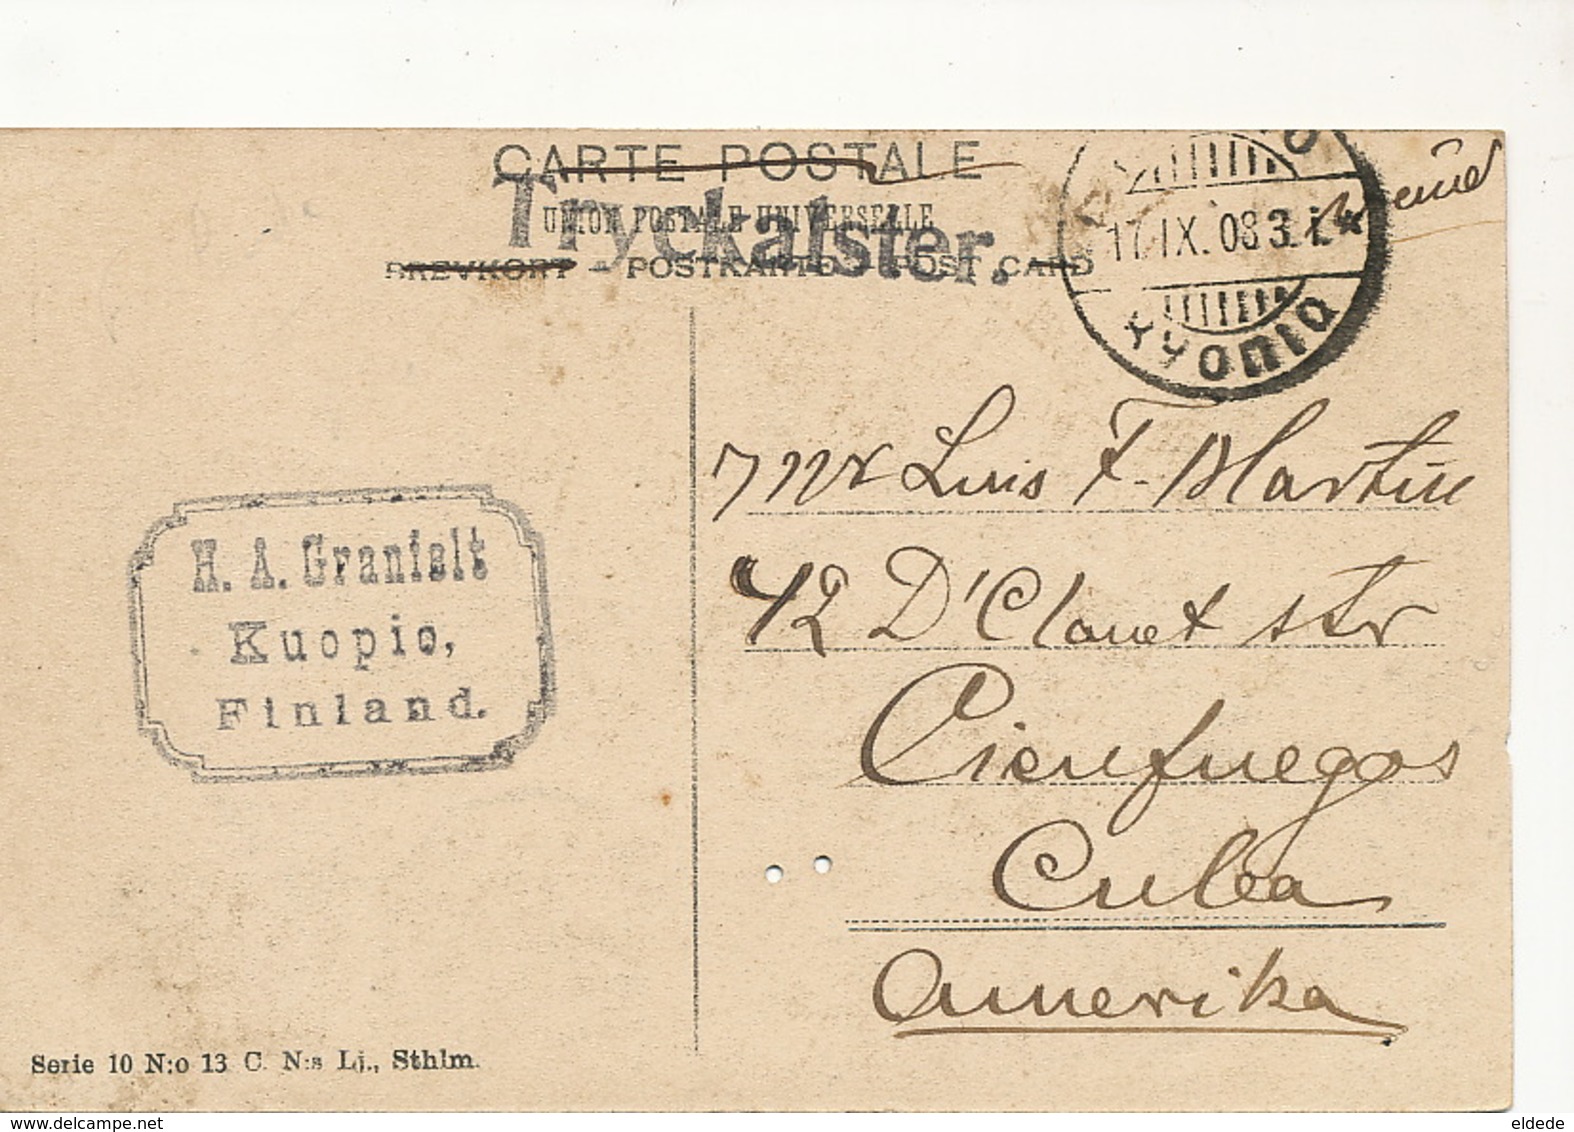 CARTE POSTALE
Tryckalster.
UNION POSTALE UNIVERSELLE
BREVKORT – POSTKARTE – POST CARD
17.IX.08 3.i.
Куопіо
Mr Luis F. Martin
42 D'Clouet str
Cienfuegos
Cuba
Amerika
H. A. Granfelt
Kuopio,
Finland.
Serie 10 N:o 13 C. N:s Lj., Sthlm.
delcampe.net
eldede